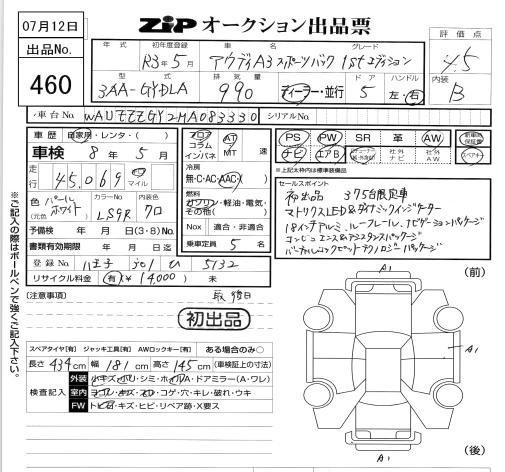 07月12日
ZIP オークション出品票
出品No.
460
年式 初年度登録 車名 グレード
R3年5月 アウディA3スポーツバック 1stエディション
評価点
4.5
型式 排気量 ドア ハンドル
3AA-GYDLA 990 ディーラー・並行 5 左・右
内装
B
車台No. WAUZZZGY2MA083330 シリアルNo.
車歴 自家用・レンタ・( )
車検 8年5月
走行 45,069 km マイル
フロア コラム インパネ
AT MT 速
冷房
無・C・AC・AAC
燃料
ガソリン・軽油・電気・その他( )
PS PW SR 革 AW 新車時保証書
ナビ エアB 社外ナビ 社外AW スペアキー
※上記太枠内は標準装備品
色 パールホワイト (元色) カラーNo. LS9R 内装色 クロ
予備検 年 月 日(3・8)No.
書類有効期限 年 月 日迄
Nox 適合・非適合
乗車定員 5 名
登録No. 八王子 301 ひ 5132
リサイクル料金 (有)(¥ 14,000) 未
セールスポイント
初出品 375台限定車
マトリクスLED&ダイナミックインジケーター
18インチアルミ、ルーフレール、ナビゲーションパッケージ
コンビニエンス&アシスタンスパッケージ
バーチャルコックピット テクノロジーパッケージ
(注意事項)
初出品
※ご記入の際はボールペンで強くご記入下さい。
スペアタイヤ[有] ジャッキ工具[有] AWロックキー[有] ある場合のみ○
長さ 434 cm 幅 181 cm 高さ 145 cm (車検証上の寸法)
検査記入
外装 小キズ・小凹・シミ・ホイルA・ドアミラー(A・ワレ)
室内 ヨゴレ・キズ・スレ・コゲ・穴・キレ・破れ・ウキ
FW トビ石・キズ・ヒビ・リペア跡・X要ス
(前)
A1
A1
A1
(後)